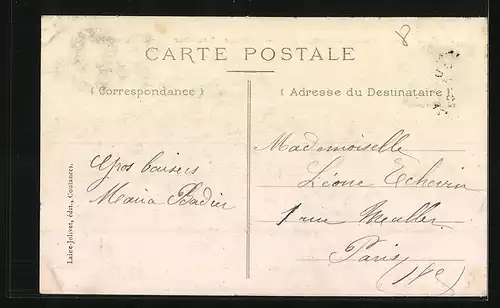 8
CARTE POSTALE
(Correspondance)
(Adresse du Destinataire)
Gros baisers
Maria Badier
Mademoiselle
Léone Echevin
1 rue Meuller
Paris
Laine-Jolivet, édit., Coutances.